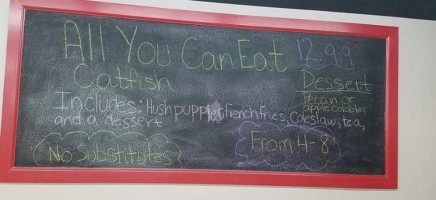 All You Can Eat 12.99
Catfish
Includes: Hushpuppies, french fries, Coleslaw, tea,
and a dessert
Dessert
Pecan or
apple cobbler
No Substitutes
From 4-8